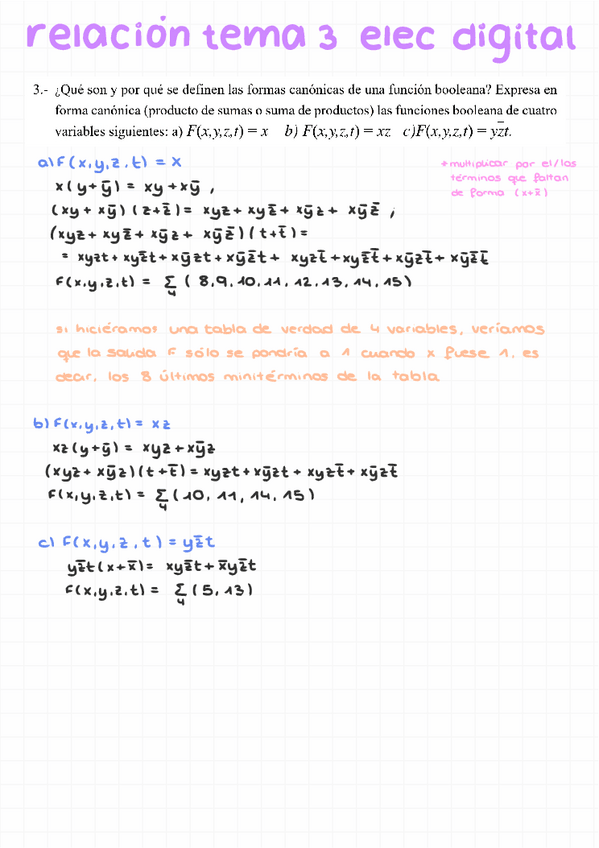 relación tema 3 elec digital
3.- ¿Qué son y por qué se definen las formas canónicas de una función booleana? Expresa en
forma canónica (producto de sumas o suma de productos) las funciones booleana de cuatro
variables siguientes: a) F(x,y,z,t) = x b) F(x,y,z,t) = xz c)F(x,y,z,t) = yz̅t.
a) F(x,y,z,t) = x
* multiplicar por el/los
términos que faltan
de forma (x+x̅)
x(y+y̅) = xy+xy̅ ,
(xy + xy̅) (z+z̅) = xyz + xyz̅ + xy̅z + xy̅z̅ ;
(xyz + xyz̅ + xy̅z + xy̅z̅) (t+t̅) =
= xyzt + xyz̅t + xy̅zt + xy̅z̅t + xyzt̅ + xyz̅t̅ + xy̅zt̅ + xy̅z̅t̅
F(x,y,z,t) = Σ4 ( 8,9,10,11,12,13,14,15)
si hiciéramos una tabla de verdad de 4 variables, veríamos
que la salida F sólo se pondría a 1 cuando x fuese 1, es
decir, los 8 últimos minitérminos de la tabla
b) F(x,y,z,t) = xz
xz(y+y̅) = xyz + xy̅z
(xyz + xy̅z) (t+t̅) = xyzt + xy̅zt + xyzt̅ + xy̅zt̅
F(x,y,z,t) = Σ4 (10, 11, 14, 15)
c) F(x,y,z,t) = yz̅t
yz̅t(x+x̅) = xyz̅t + x̅yz̅t
F(x,y,z,t) = Σ4 (5,13)